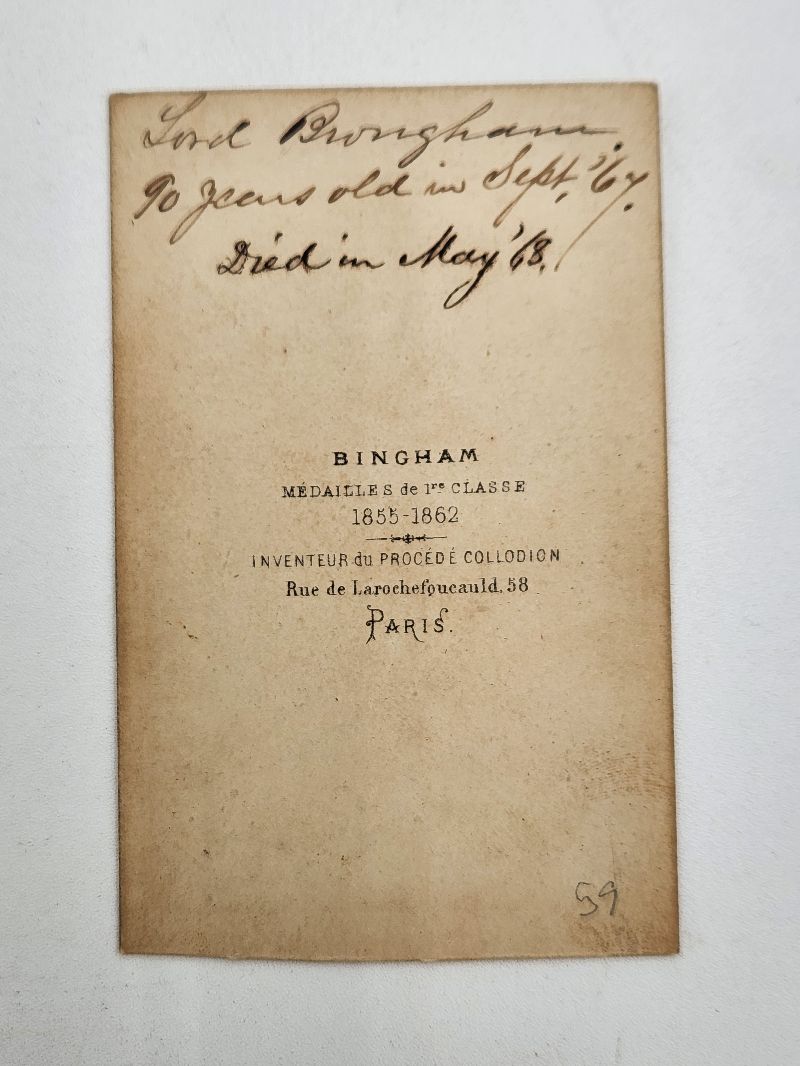 Lord Brougham.
90 years old in Sept, '67.
Died in May '68.
BINGHAM
MÉDAILLES de 1re CLASSE
1855-1862
INVENTEUR du PROCÉDÉ COLLODION
Rue de Larochefoucauld, 58
PARIS.
59